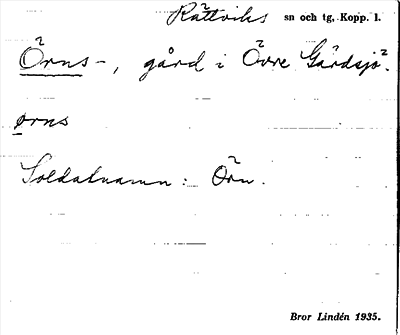 Rättviks sn och tg, Kopp. l.
Örns-, gård i Övre Gärdsjö.
ørns
Soldatnamn: Örn.
Bror Lindén 1935.